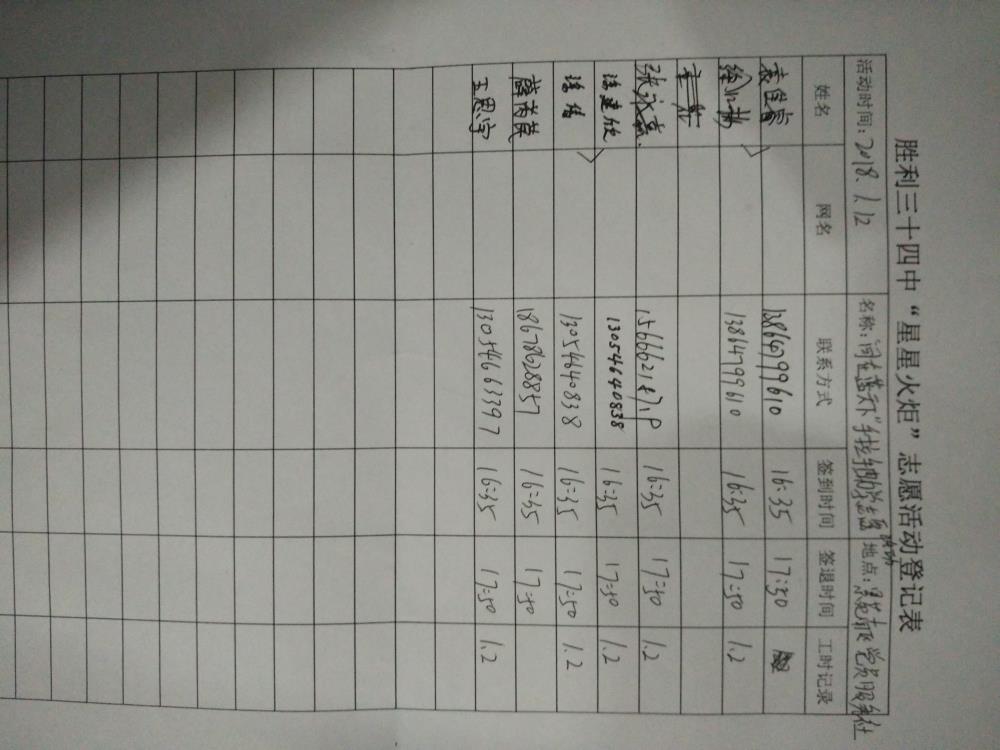 胜利三十四中“星星火炬”志愿活动登记表
活动时间：2018.1.12 名称：“同在蓝天下”手拉手助学志愿活动 地点：
姓名 网名 联系方式 签到时间 签退时间 工时记录
13864799610 16:35 17:50
13864799610 16:35 17:50 1.2
张 16:35 17:50 1.2
13054640838 16:35 17:50 1.2
13054640838 16:35 17:50 1.2
薛芮莀 18678628857 16:35 17:50
王恩宇 13054663397 16:35 17:50 1.2